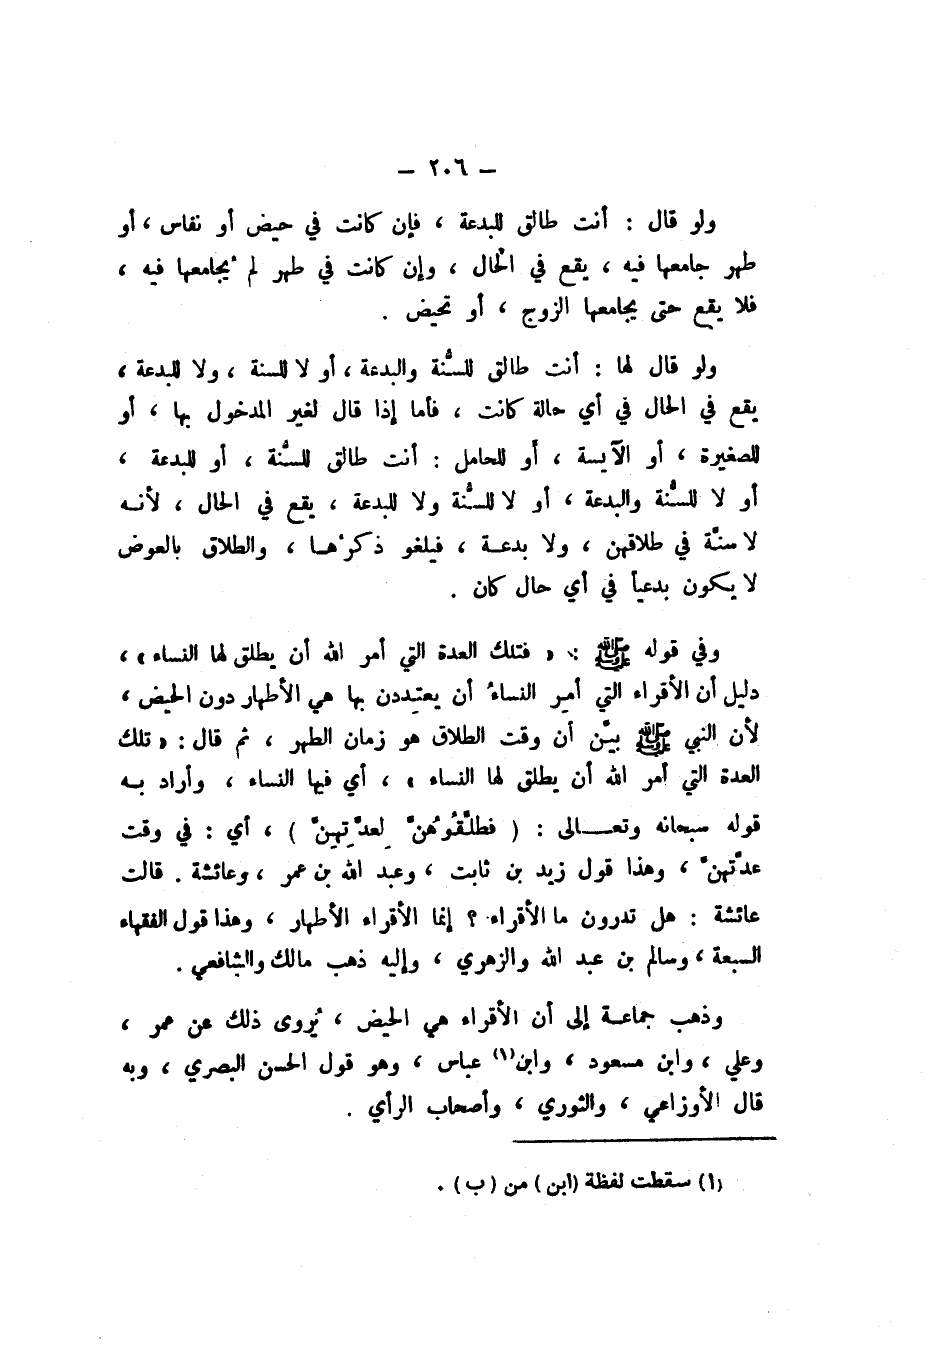 – ٢٠٦ –
ولو قال : أنت طالق للبدعة ، فإن كانت في حيض أو نفاس ، أو
طهر جامعها فيه ، يقع في الحال ، وإن كانت في طهر لم يُجامعها فيه ،
فلا يقع حتى يجامعها الزوج ، أو تحيض .
ولو قال لها : أنت طالق للسُّنة والبدعة ، أو لا للسنة ، ولا للبدعة ،
يقع في الحال في أي حالة كانت ، فأما إذا قال لغير المدخول بها ، أو
للصغيرة ، أو الآيسة ، أو للحامل : أنت طالق للسُّنة ، أو للبدعة ،
أو لا للسُّنة والبدعة ، أو لا للسُّنة ولا للبدعة ، يقع في الحال ، لأنه
لا سنَّة في طلاقهن ، ولا بدعة ، فيلغو ذكرُها ، والطلاق بالعوض
لا يكون بدعياً في أي حال كان .
وفي قوله ﷺ : « فتلك العدة التي أمر الله أن يطلق لها النساء » ،
دليل أن الأقراء التي أمِر النساءُ أن يعتددن بها هي الأطهار دون الحيض ،
لأن النبي ﷺ بيَّن أن وقت الطلاق هو زمان الطهر ، ثم قال : « تلك
العدة التي أمر الله أن يطلق لها النساء » ، أي فيها النساء ، وأراد به
قوله سبحانه وتعالى : ( فطلِّقُوُهنَّ لِعدَّتِهِنَّ ) ، أي : في وقت
عدَّتهنَّ ، وهذا قول زيد بن ثابت ، وعبد الله بن عمر ، وعائشة . قالت
عائشة : هل تدرون ما الأقراء ؟ إنما الأقراء الأطهار ، وهذا قول الفقهاء
السبعة ، وسالم بن عبد الله والزهري ، وإليه ذهب مالك والشافعي .
وذهب جماعة إلى أن الأقراء هي الحيض ، يُروى ذلك عن عمر ،
وعلي ، وابن مسعود ، وابن(١) عباس ، وهو قول الحسن البصري ، وبه
قال الأوزاعي ، والثوري ، وأصحاب الرأي .
(١) سقطت لفظة (ابن) من (ب) .